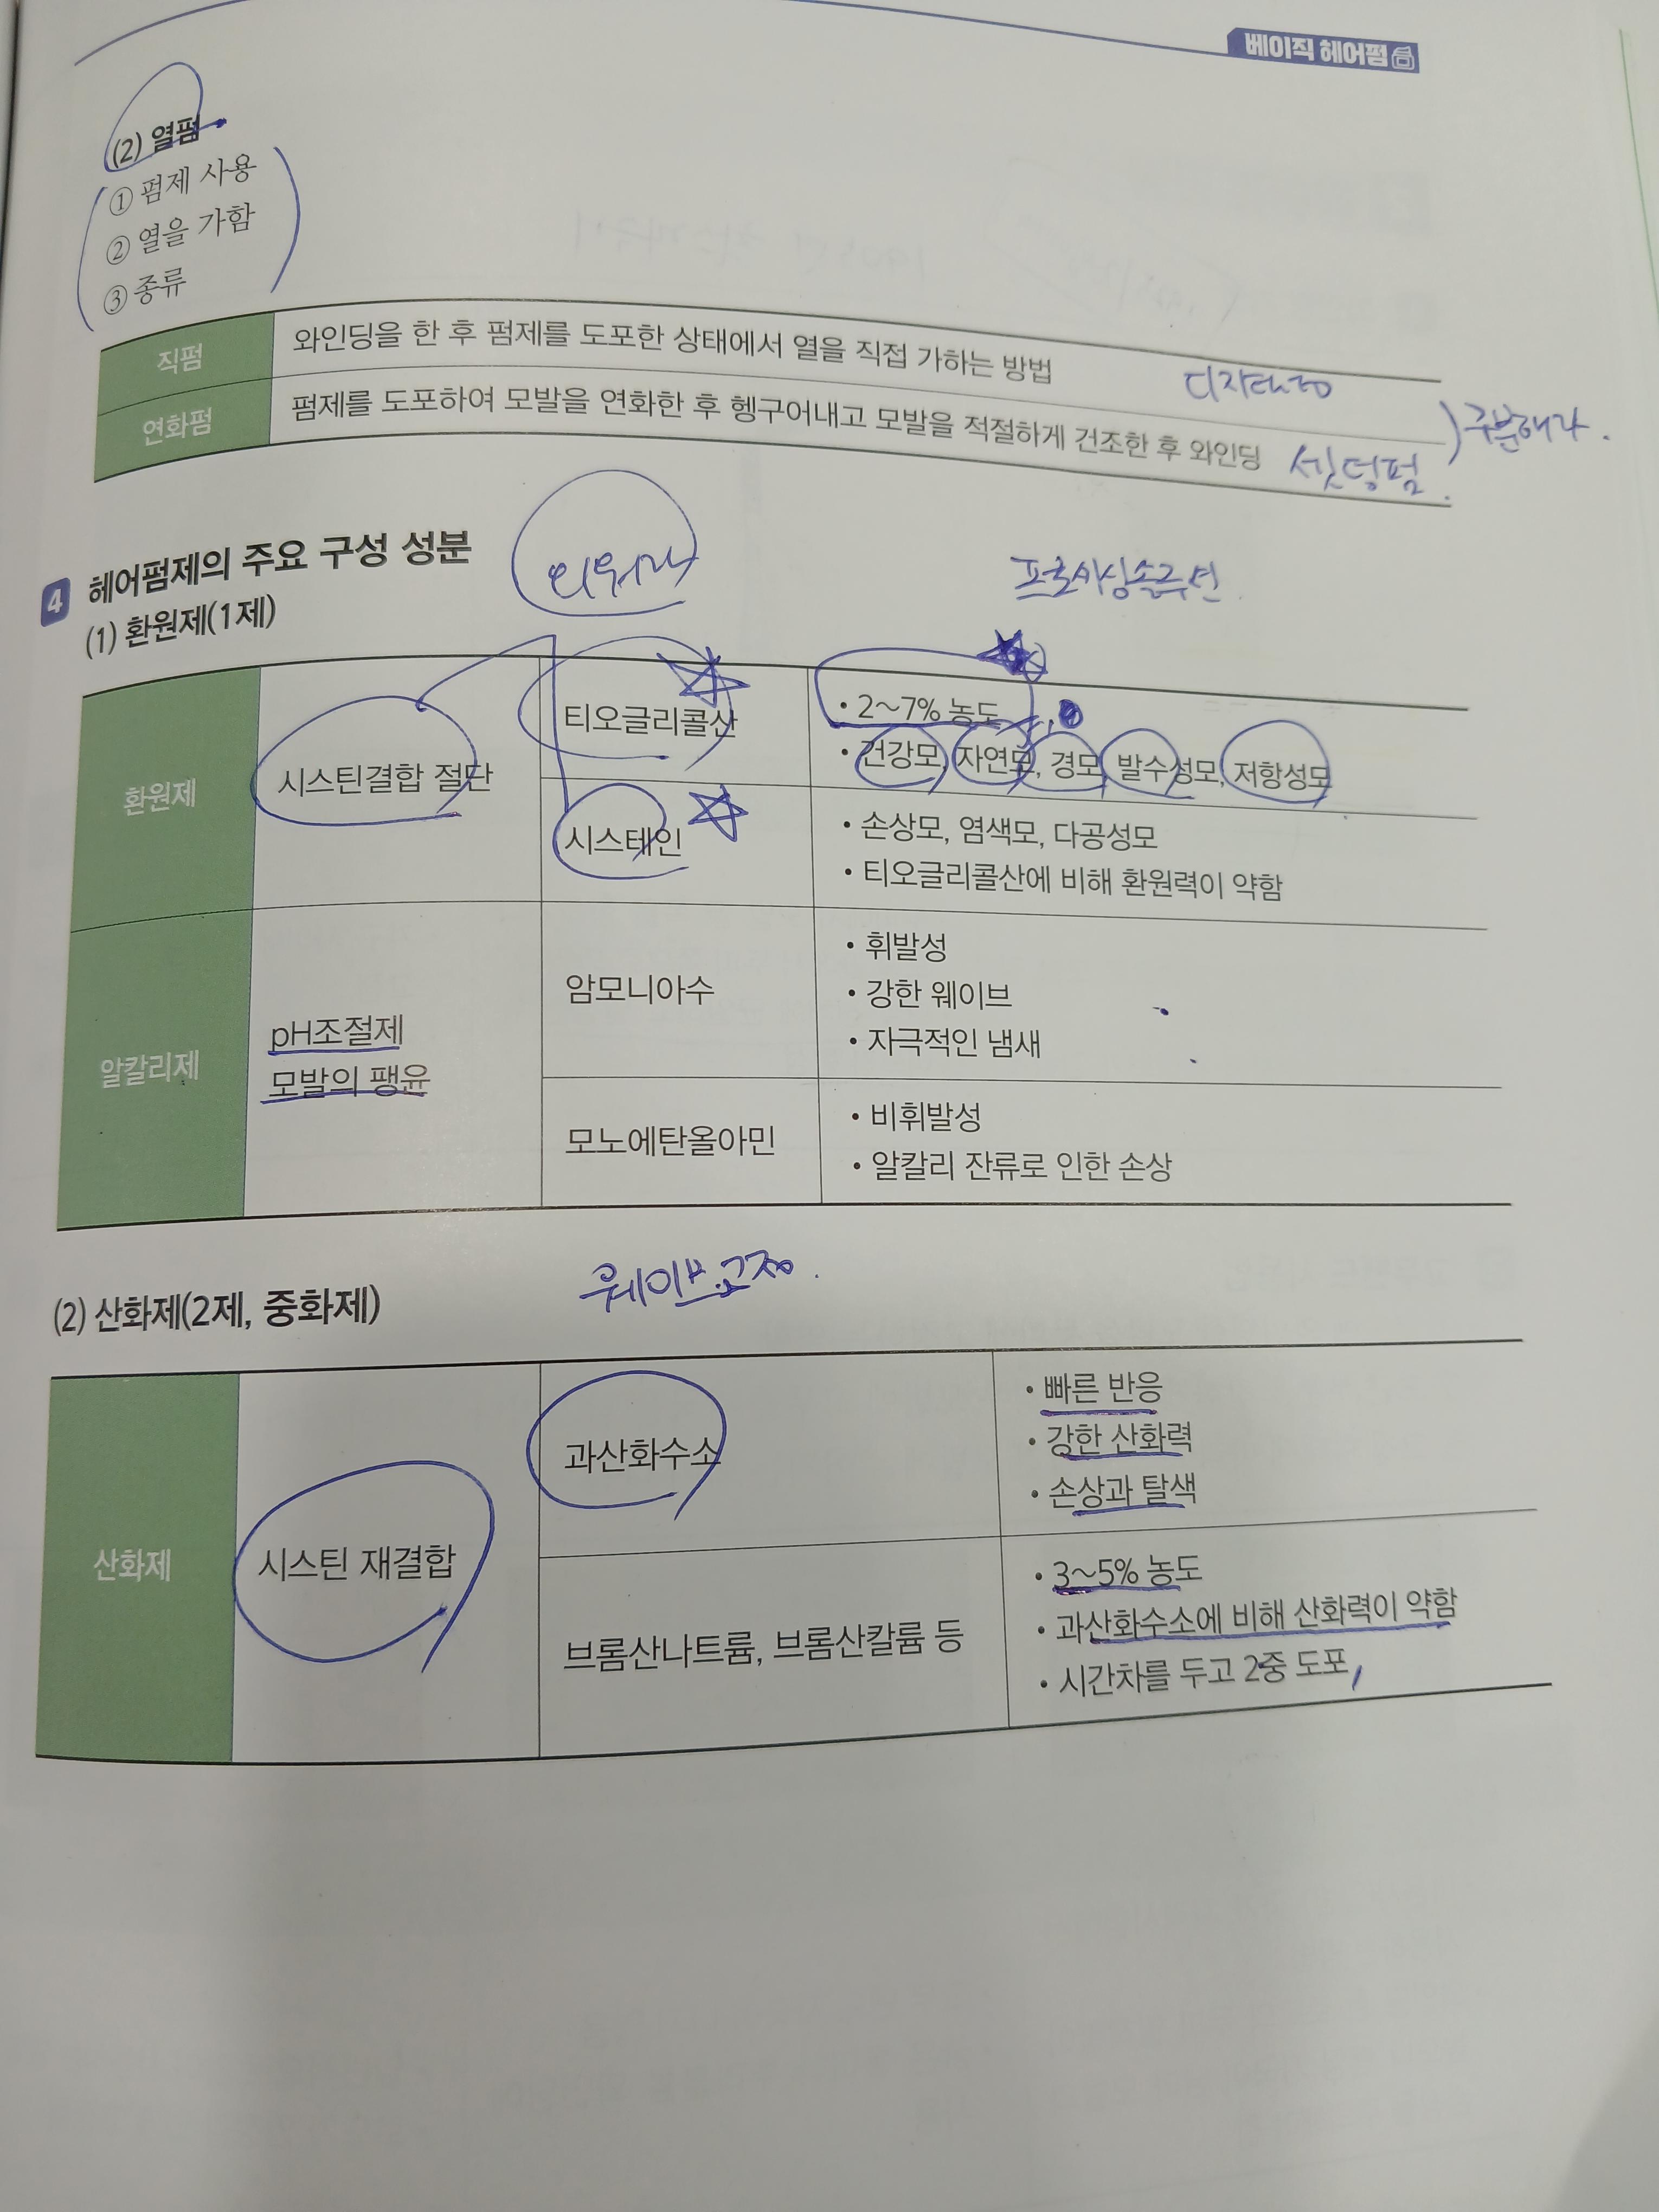 베이직 헤어펌
(2) 열펌
① 펌제 사용
② 열을 가함
③ 종류
직펌
와인딩을 한 후 펌제를 도포한 상태에서 열을 직접 가하는 방법
연화펌
펌제를 도포하여 모발을 연화한 후 헹구어내고 모발을 적절하게 건조한 후 와인딩
셋팅펌
구분해라.
4 헤어펌제의 주요 구성 성분
프로세싱솔루션
(1) 환원제(1제)
환원제
시스틴결합 절단
티오글리콜산
• 2~7% 농도
• 건강모, 자연모, 경모, 발수성모, 저항성모
시스테인
• 손상모, 염색모, 다공성모
• 티오글리콜산에 비해 환원력이 약함
알칼리제
pH조절제
모발의 팽윤
암모니아수
• 휘발성
• 강한 웨이브
• 자극적인 냄새
모노에탄올아민
• 비휘발성
• 알칼리 잔류로 인한 손상
(2) 산화제(2제, 중화제)
웨이브고정.
산화제
시스틴 재결합
과산화수소
• 빠른 반응
• 강한 산화력
• 손상과 탈색
브롬산나트륨, 브롬산칼륨 등
• 3~5% 농도
• 과산화수소에 비해 산화력이 약함
• 시간차를 두고 2중 도포